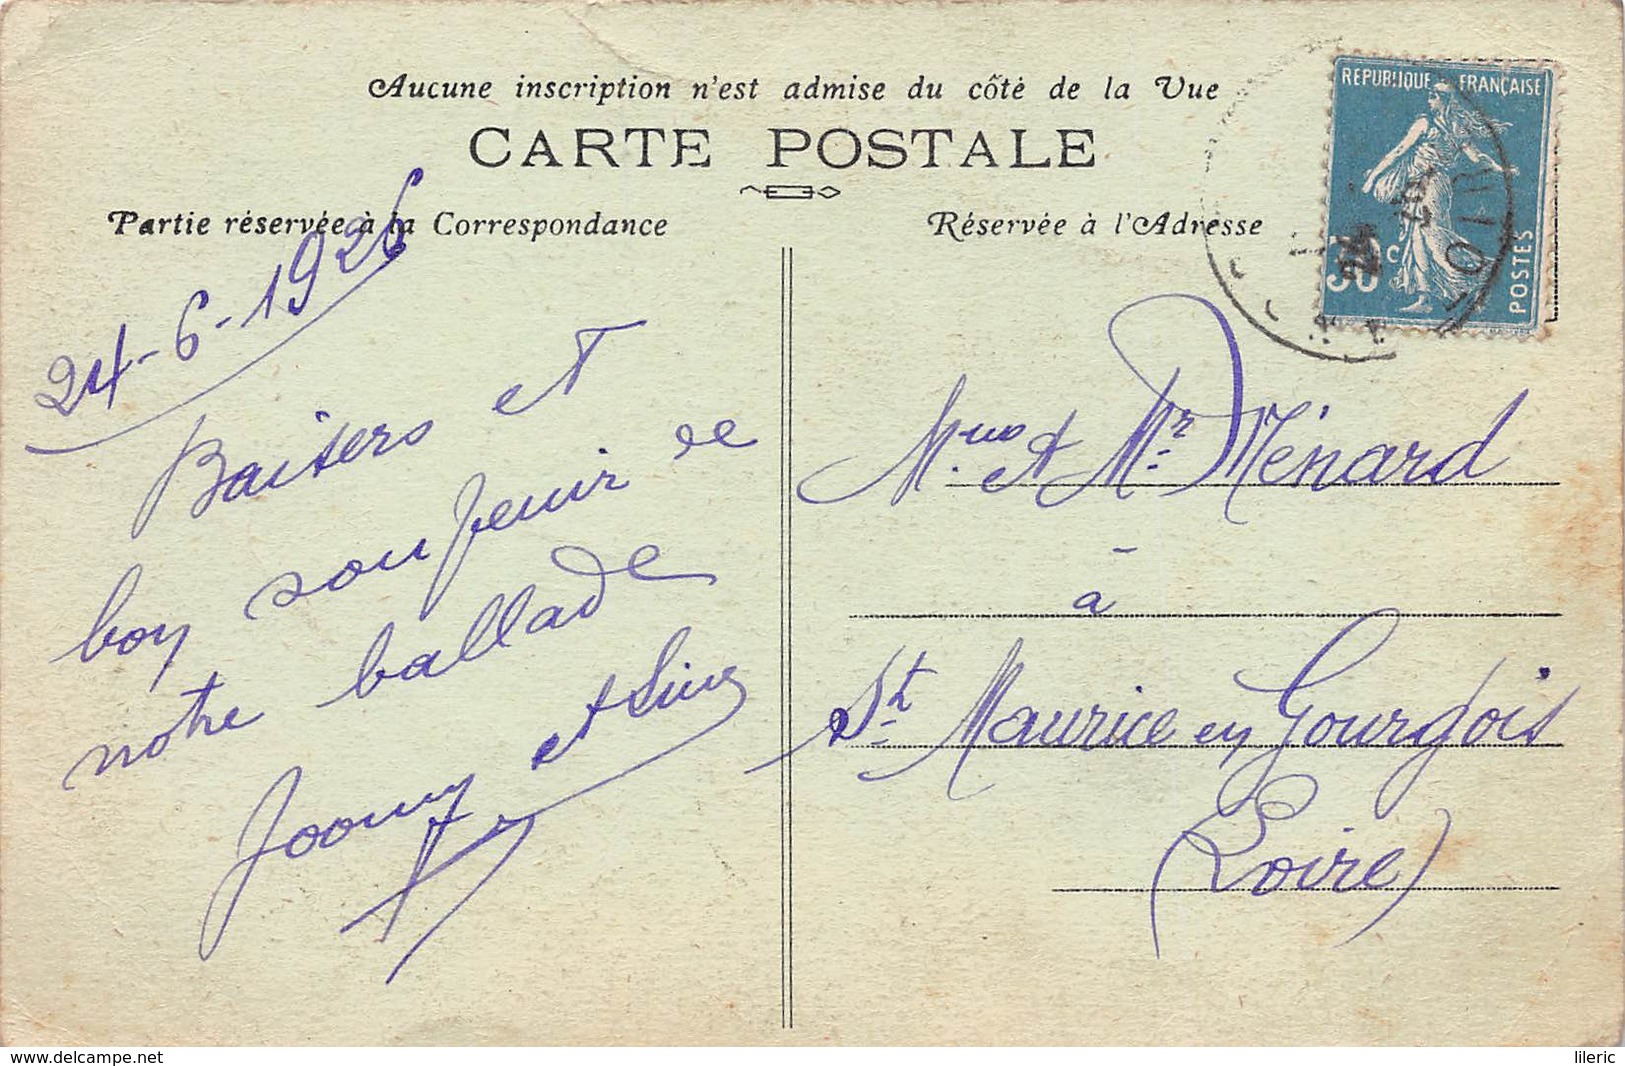 Aucune inscription n'est admise du côté de la Vue
CARTE POSTALE
Partie réservée à la Correspondance
24-6-1926
Baisers et
bon souvenir de
notre ballade
et
Réservée à l'Adresse
RÉPUBLIQUE FRANÇAISE
30c
POSTES
LOIRE
Mr Ménard
à
St Maurice en Gourgois
(Loire)
www.delcampe.net
lileric